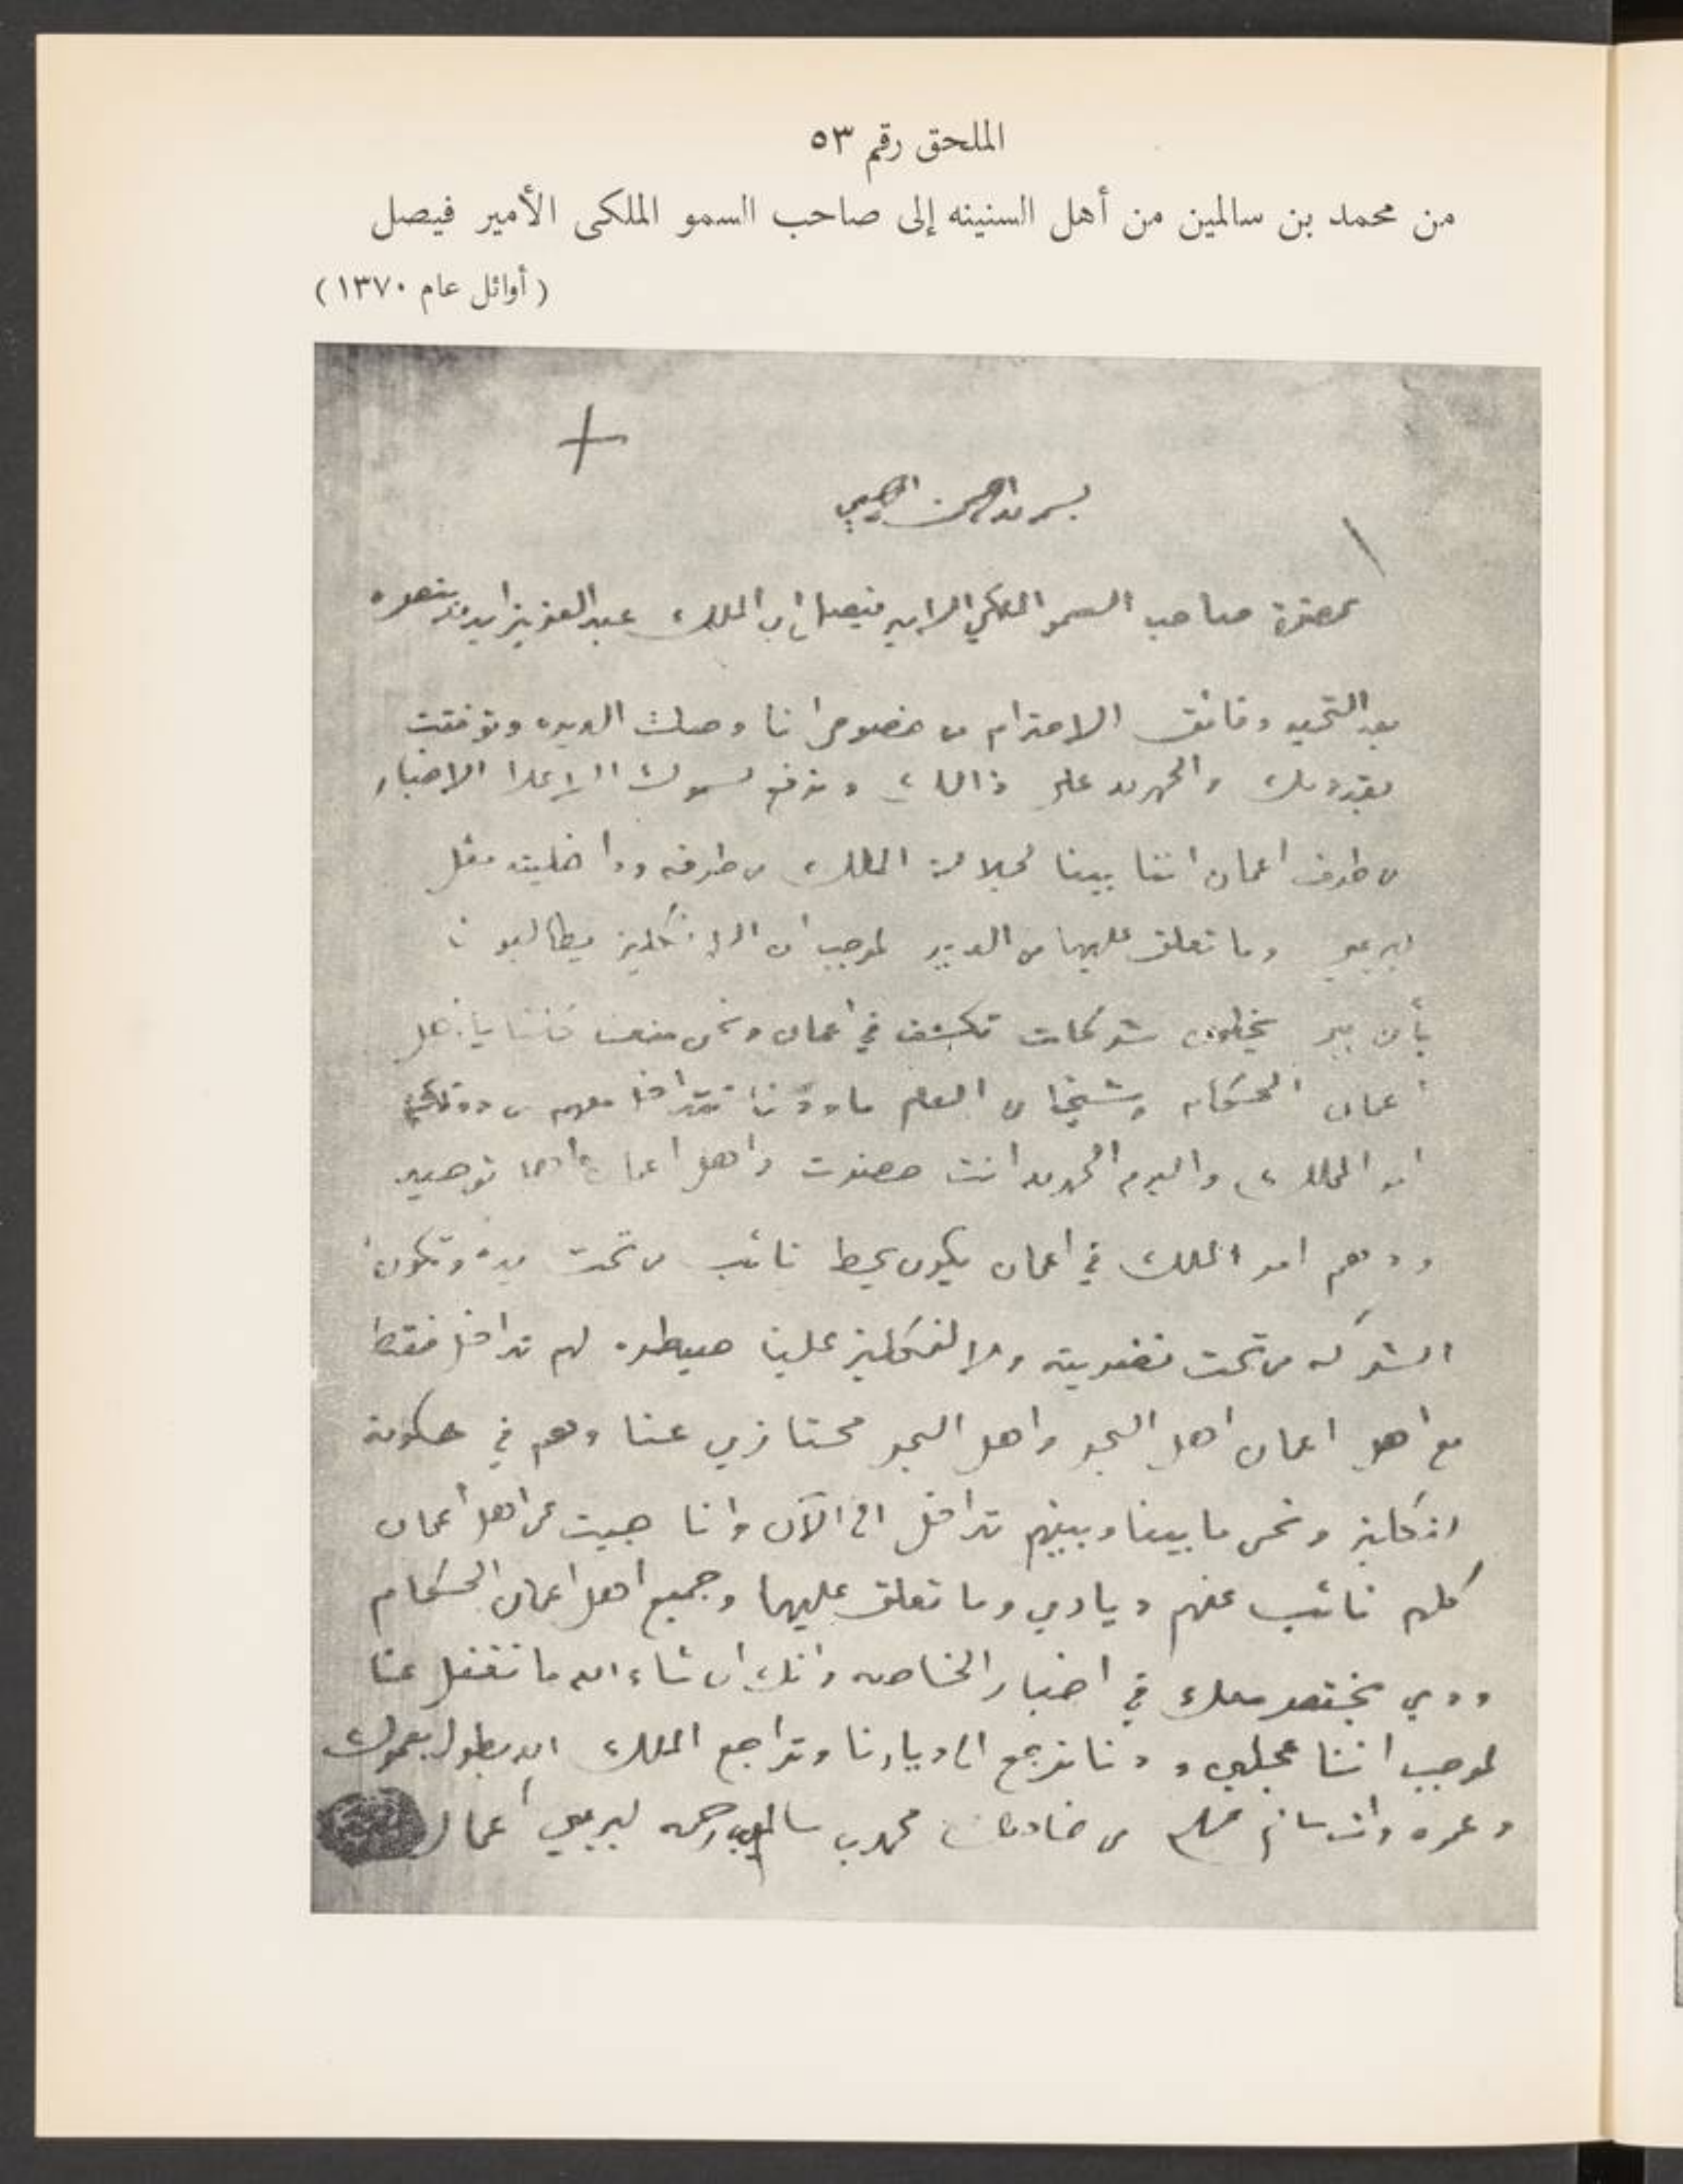 الملحق رقم ٥٣
من محمد بن سالمين من أهل السنينه إلى صاحب السمو الملكى الأمير فيصل
( أوائل عام ١٣٧٠ )
بسم الله الرحمن الرحيم
حضرة صاحب السمو الملكي الامير فيصل ابن الملك عبد العزيز ايده الله بنصره
بعد التحيه وفائق الاحترام من خصوص انا وصلت الديره وتوفقت
بقدومك والحمد لله على ذالك ونرفع لسموك الاعلا الاخبار
من طرف اعمان اننا بيننا لجلالة الملك من طرفه وداخليته مثل
لبريمي وما تعلق عليها من الديير لموجب ان الانكليز يطالبونا
بأن يبر يخطون شركات تكشف في اعمان ونحن منعنا
أعمان الحكام وشيخان العلم ما ودنا نتداخل معهم من دون
امر الملك واليوم الحمد لله انت حضرت واهل اعمان
ودهم امر الملك في اعمان يكون يحط نائب من تحت يده وتكون
الشركه من تحت تضريبته ولا لنكليز علينا سيطره لهم تداخل فقط
مع اهل اعمان اهل البحر واهل البحر محتازين عنا وهم في حكومة
انكليز ونحن ما بيننا وبينهم تداخل الى الآن وانا جيت عن اهل أعمان
كلهم نائب عنهم ديادي وما تعلق عليها وجميع اهل اعمان الحكام
ودي نختصر معك في اخبار الخاصه وانك ان شاء الله ما تغفل عنا
لموجب اننا عجلين ودنا نرجع الى ديارنا وتراجع الملك الله يطول بعمرك
وعمره وانت سالم من خادمك محمد بن سالمين لبريمي أعمان